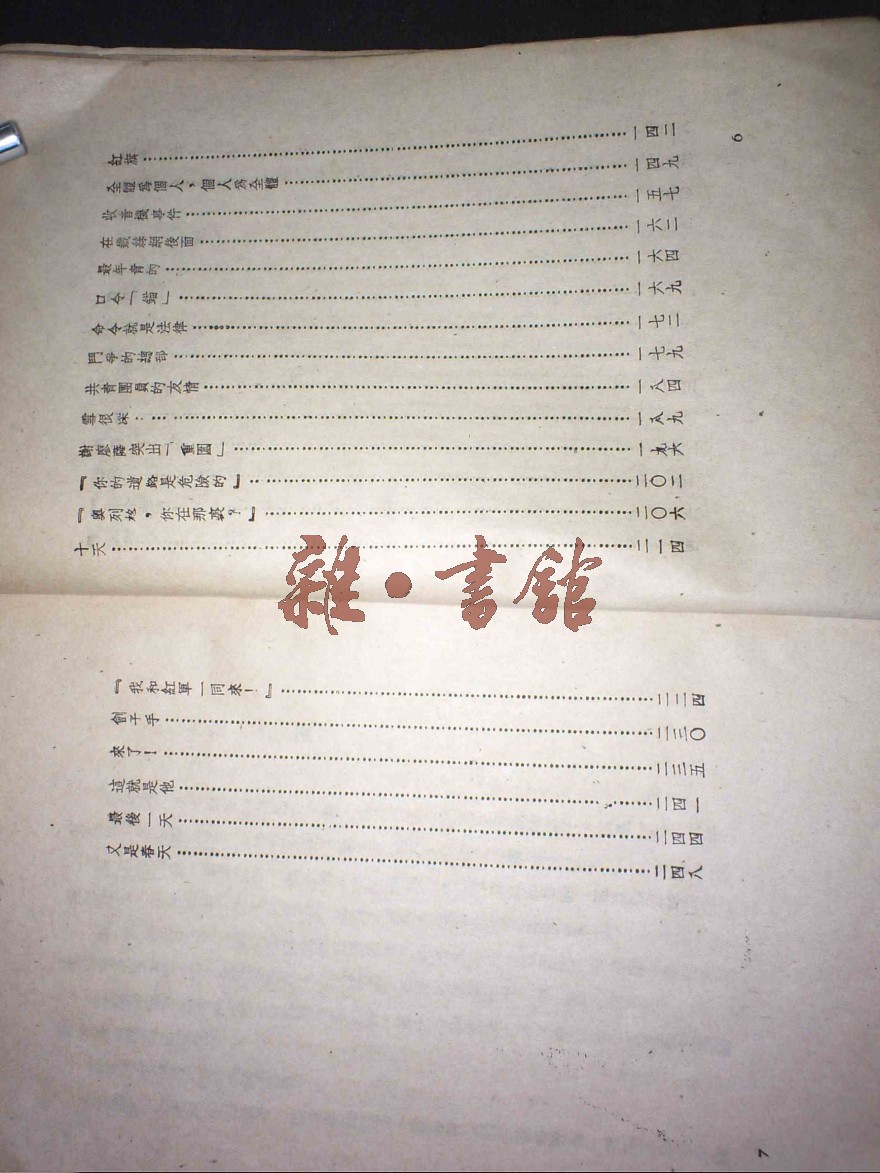 紅旗……一四二
全體為個人，個人為全體……一四九
收音機事件……一五七
在鐵絲網後面……一六二
最年青的……一六四
口令「錨」……一六九
命令就是法律……一七二
鬥爭的總部……一七九
共青團員的友情……一八四
雪很深……一八九
謝廖薩突出「重圍」……一九六
『你的道路是危險的』……二〇二
『奧列格，你在那裏？』……二〇六
十天……二一四
6
『我和紅軍一同來！』……二二四
劊子手……二三〇
來了！……二三五
這就是他……二四一
最後一天……二四四
又是春天……二四八
7
雜·書館